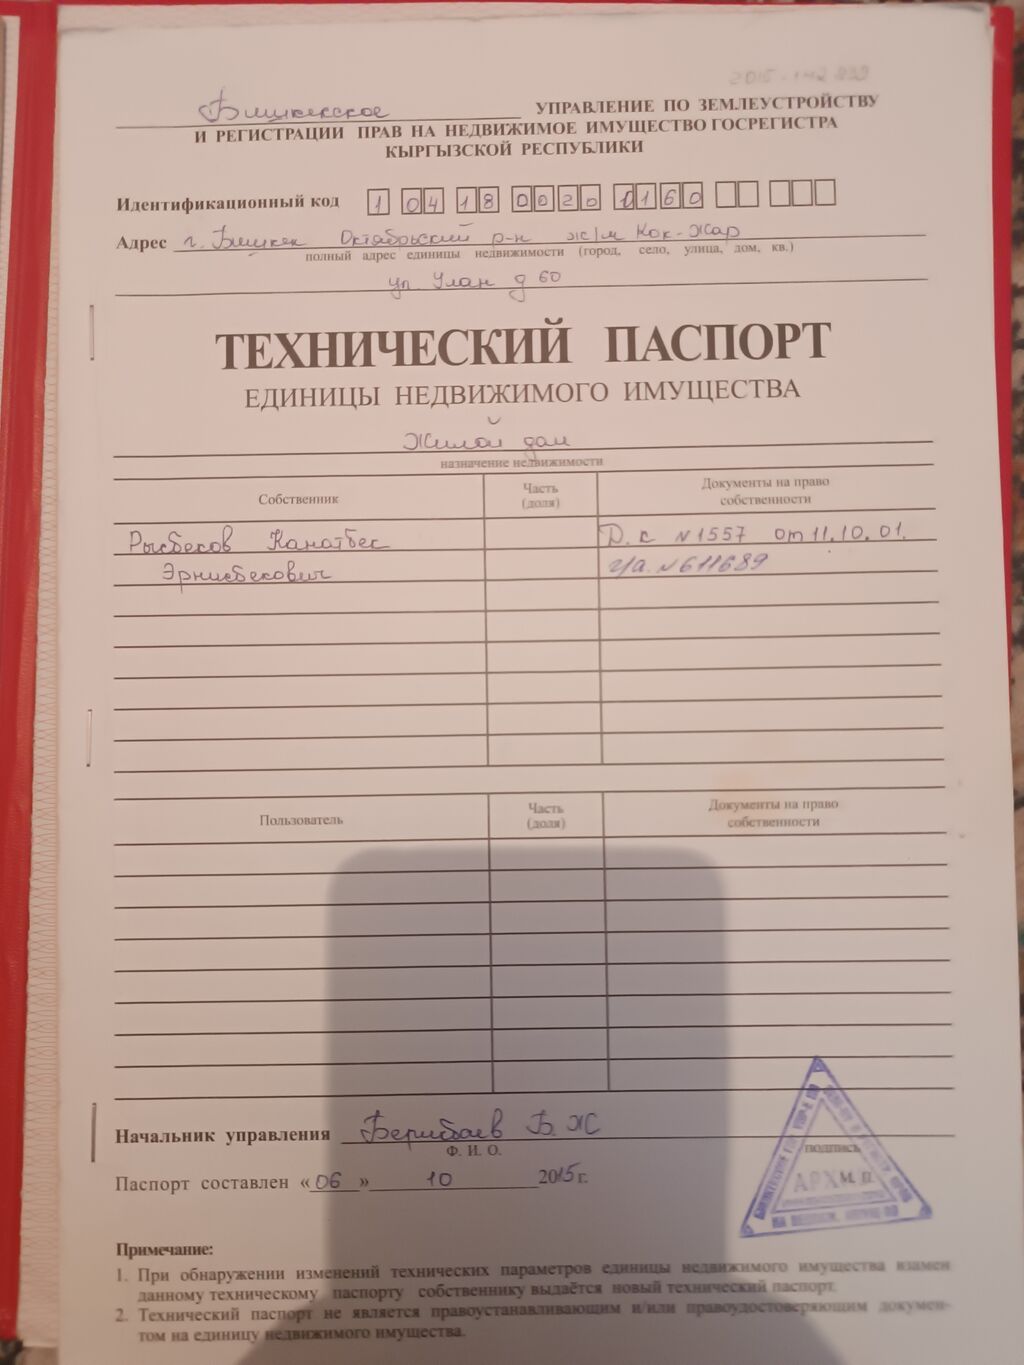 2015-142 939
Бишкекское УПРАВЛЕНИЕ ПО ЗЕМЛЕУСТРОЙСТВУ
И РЕГИСТРАЦИИ ПРАВ НА НЕДВИЖИМОЕ ИМУЩЕСТВО ГОСРЕГИСТРА
КЫРГЫЗСКОЙ РЕСПУБЛИКИ
Идентификационный код 1 04 18 0020 0160
Адрес г. Бишкек Октябрьский р-н ж/м Кок-Жар
полный адрес единицы недвижимости (город, село, улица, дом, кв.)
ул. Улан д 60
ТЕХНИЧЕСКИЙ ПАСПОРТ
ЕДИНИЦЫ НЕДВИЖИМОГО ИМУЩЕСТВА
Жилой дом
назначение недвижимости
Собственник Часть (доля) Документы на право собственности
Рысбеков Канатбек Д.к N1557 от 11.10.01.
Эрнисбекович г/а. N611689
Пользователь Часть (доля) Документы на право собственности
Начальник управления Б.Ж
Ф. И. О. подпись
Паспорт составлен «06» 10 2015 г.
АРХ М. П.
Примечание:
1. При обнаружении изменений технических параметров единицы недвижимого имущества взамен
данному техническому паспорту собственнику выдаётся новый технический паспорт.
2. Технический паспорт не является правоустанавливающим и/или правоудостоверяющим докумен-
том на единицу недвижимого имущества.